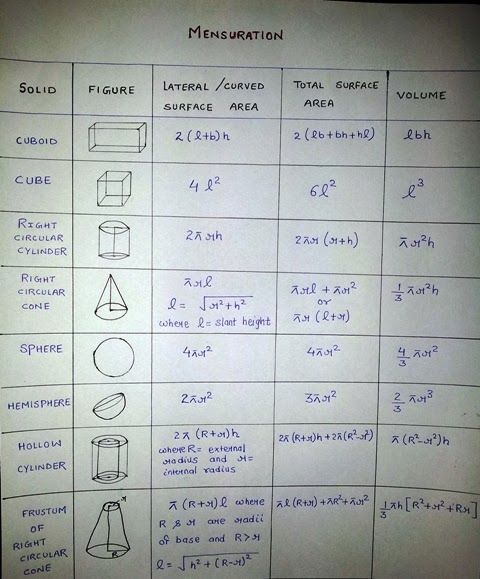 MENSURATION
SOLID FIGURE LATERAL/CURVED SURFACE AREA TOTAL SURFACE AREA VOLUME
CUBOID 2(l+b)h 2(lb+bh+hl) lbh
CUBE 4l² 6l² l³
RIGHT CIRCULAR CYLINDER 2πrh 2πr(r+h) πr²h
RIGHT CIRCULAR CONE
πrl
l = √r²+h²
where l = slant height
πrl + πr²
or
πr(l+r)
1/3 πr²h
SPHERE 4πr² 4πr² 4/3 πr²
HEMISPHERE 2πr² 3πr² 2/3 πr³
HOLLOW CYLINDER
2π(R+r)h
where R = external
radius and r =
internal radius
2π(R+r)h+2π(R²-r²)
π(R²-r²)h
FRUSTUM OF RIGHT CIRCULAR CONE
r
R
π(R+r)l where
R & r are radii
of base and R>r
l = √h²+(R-r)²
πl(R+r)+πR²+πr²
1/3 πh[R²+r²+Rr]